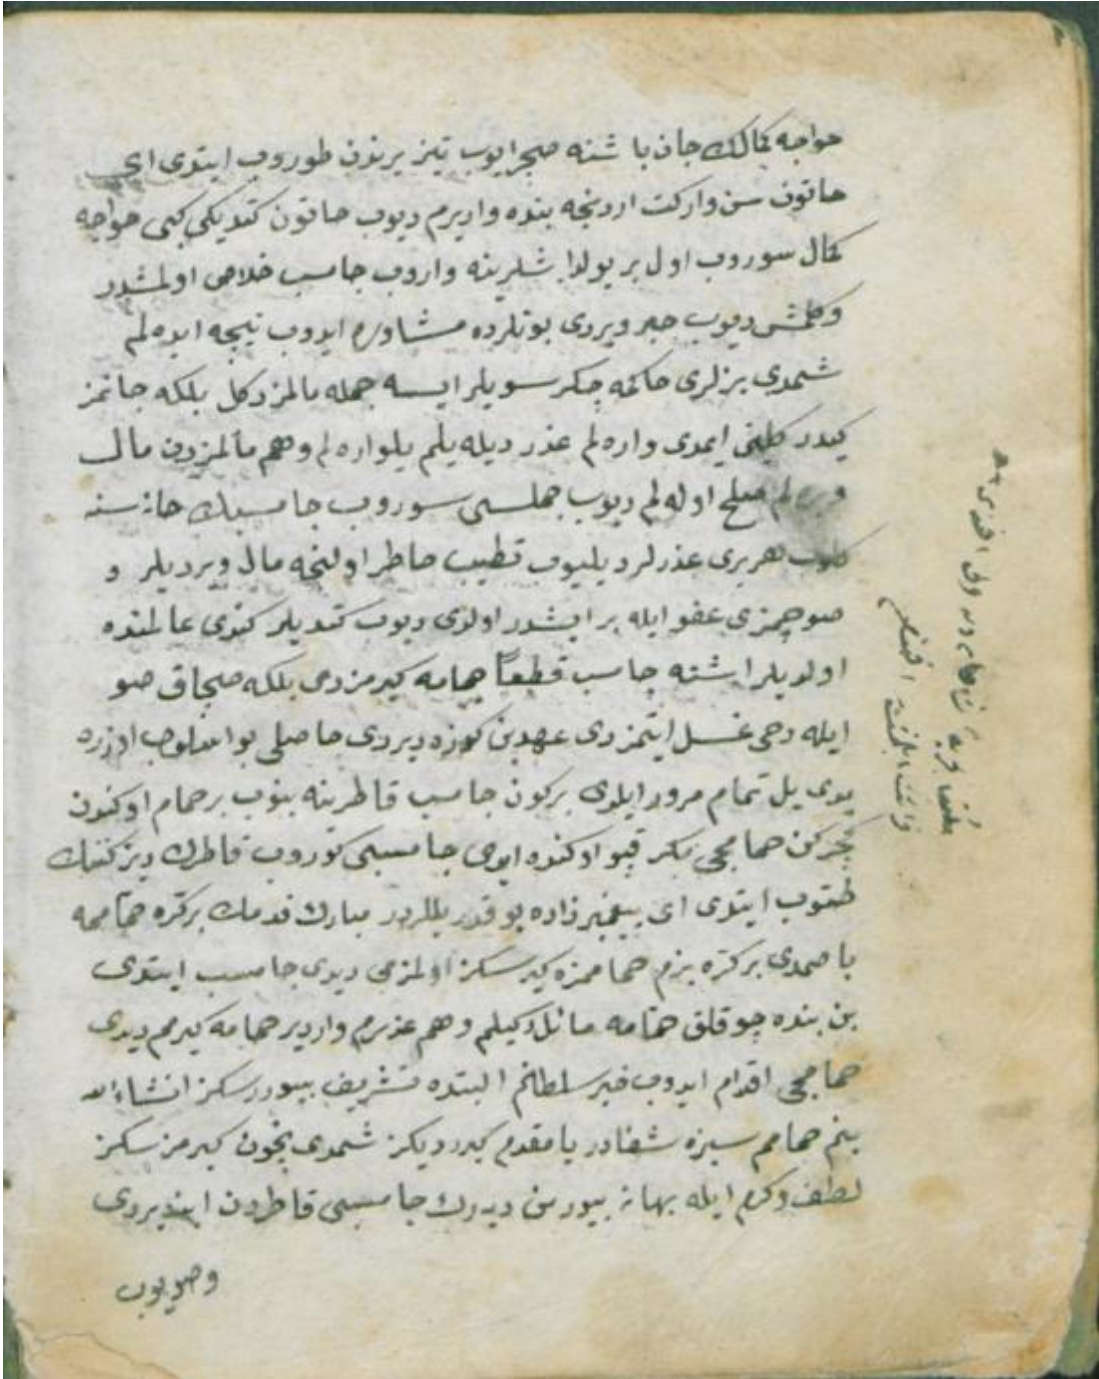 خواجه كمالك جان باشنه صچرايوب تيز يرندن طوروب ايتدى اى
خاتون سن وار كت اردنجه بنده واريرم ديوب خاتون كتديكى كبى خواجه
كمال سوروب اول بر يولداشلرينه واروب جامسب خلاص اولمشدر
وكلمش ديوب خبر ويردى بونلرده مشاوره ايدوب نيجه ايده لم
شمدى بزلرى حاكمه چكر سويلر ايسه جمله مالمز دكل بلكه جانمز
كيدر ايمدى واره لم عذر ديله يلم يلواره لم وهم مالمزدن مال
ويره لم صلح اوله لم ديوب جمله سى سوروب جامسبك خانه سنه
كلوب هربرى عذرلر ديليوب تطييب خاطر اولنجه مال ويرديلر و
صوچمزى عفو ايله بر ايشدر اولدى ديوب كتديلر كندى عالمنده
اولديلر اشته جامسب قطعا حمامه كيرمزدى بلكه صيجاق صو
ايله دخى غسل ايتمزدى عهدين كوزه ديردى حاصلى بو اسلوب اوزره
يدى يل تمام مرور ايلدى بركون جامسب قاطرينه بنوب بر حمام اوكندن
كچركن حمامجى مكر قپو اوكنده ايدى جامسبى كوروب قاطرك ديزكنك
طتوب ايتدى اى پيغمبرزاده بو قدر يللردر مبارك قدمك بركره حمامه
باصمدى بركره بزم حماممزه كيرسكز اولمزمى ديدى جامسب ايتدى
بن بنده چوقلق حمامه مائل دكيلم وهم عذرم واردير حمامه كيرمم ديدى
حمامجى اقدام ايدوب خير سلطانم البته ده تشريف بيوررسكز انشاءالله
بنم حمامم سيزه شفادر يا مقدم كيررديكز شمدى نچون كيرمزسكز
لطف وكرم ايله بهانه بيورمن ديه رك جامسبى قاطردن اينديردى
وصويوب